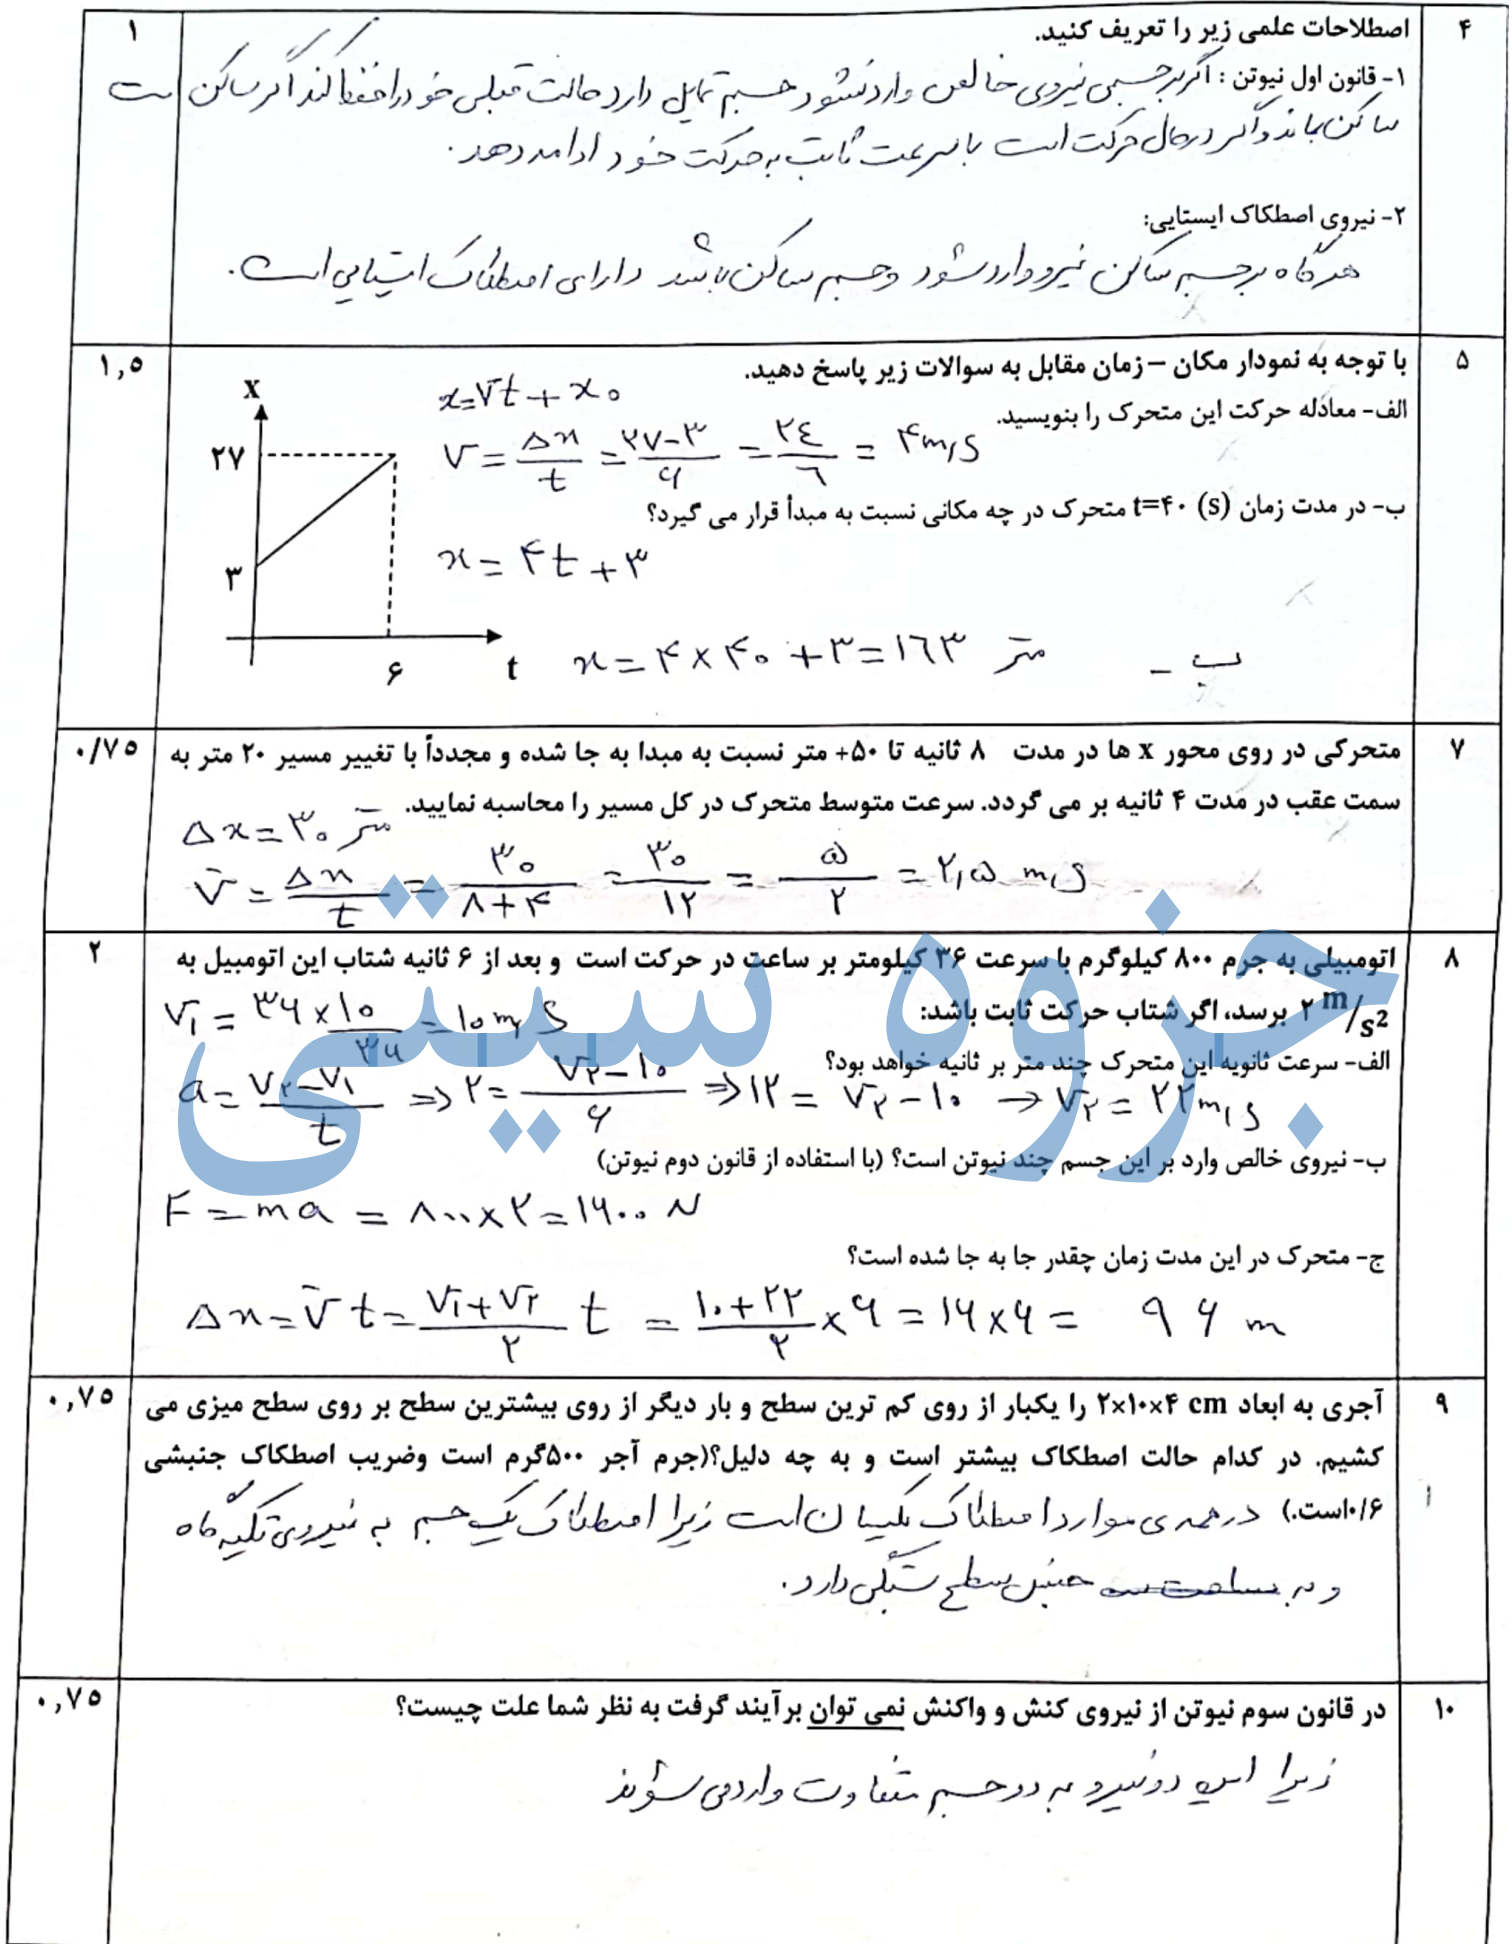 ۴
اصطلاحات علمی زیر را تعریف کنید.
۱
۱- قانون اول نیوتن : اگر بر جسمی نیروی خالص وارد نشود جسم تمایل دارد حالت قبلی خود را حفظ کند اگر ساکن است
ساکن بماند و اگر در حال حرکت است با سرعت ثابت به حرکت خود ادامه دهد.
۲- نیروی اصطکاک ایستایی:
هرگاه بر جسم ساکن نیرو وارد شود و جسم ساکن باشد دارای اصطکاک ایستایی است.
۵
با توجه به نمودار مکان – زمان مقابل به سوالات زیر پاسخ دهید.
۱,۵
x = v̄t + x₀
الف- معادله حرکت این متحرک را بنویسید.
v = Δx/t = (۲۷-۳)/۶ = ۲۴/۶ = ۴ m/s
ب- در مدت زمان t=۴۰ (s) متحرک در چه مکانی نسبت به مبدأ قرار می گیرد؟
x = ۴t + ۳
ب - x = ۴ × ۴۰ + ۳ = ۱۶۳ متر
x
۲۷
۳
۶
t
۷
متحرکی در روی محور x ها در مدت ۸ ثانیه تا ۵۰+ متر نسبت به مبدا به جا شده و مجدداً با تغییر مسیر ۲۰ متر به
۰/۷۵
سمت عقب در مدت ۴ ثانیه بر می گردد. سرعت متوسط متحرک در کل مسیر را محاسبه نمایید.
Δx = ۳۰ متر
v̄ = Δx/t = ۳۰/(۸+۴) = ۳۰/۱۲ = ۵/۲ = ۲,۵ m/s
جزوه سیتی
۸
اتومبیلی به جرم ۸۰۰ کیلوگرم با سرعت ۳۶ کیلومتر بر ساعت در حرکت است و بعد از ۶ ثانیه شتاب این اتومبیل به
۲
۲ m/s² برسد، اگر شتاب حرکت ثابت باشد:
v₁ = ۳۶ × ۱۰/۳۶ = ۱۰ m/s
الف- سرعت ثانویه این متحرک چند متر بر ثانیه خواهد بود؟
a = (v₂ - v₁)/t ⇒ ۲ = (v₂ - ۱۰)/۶ ⇒ ۱۲ = v₂ - ۱۰ → v₂ = ۲۲ m/s
ب- نیروی خالص وارد بر این جسم چند نیوتن است؟ (با استفاده از قانون دوم نیوتن)
F = ma = ۸۰۰ × ۲ = ۱۶۰۰ N
ج- متحرک در این مدت زمان چقدر جا به جا شده است؟
Δx = v̄ t = (v₁ + v₂)/۲ t = (۱۰ + ۲۲)/۲ × ۶ = ۱۶ × ۶ = ۹۶ m
۹
آجری به ابعاد ۲×۱۰×۴ cm را یکبار از روی کم ترین سطح و بار دیگر از روی بیشترین سطح بر روی سطح میزی می
۰,۷۵
کشیم. در کدام حالت اصطکاک بیشتر است و به چه دلیل؟(جرم آجر ۵۰۰گرم است وضریب اصطکاک جنبشی
۰/۶است.) در همه ی موارد اصطکاک یکسان است زیرا اصطکاک یک جسم به نیروی تکیه گاه
و به جنس سطح بستگی دارد.
۱۰
در قانون سوم نیوتن از نیروی کنش و واکنش نمی توان برآیند گرفت به نظر شما علت چیست؟
۰,۷۵
زیرا این دو نیرو به دو جسم متفاوت وارد می شوند